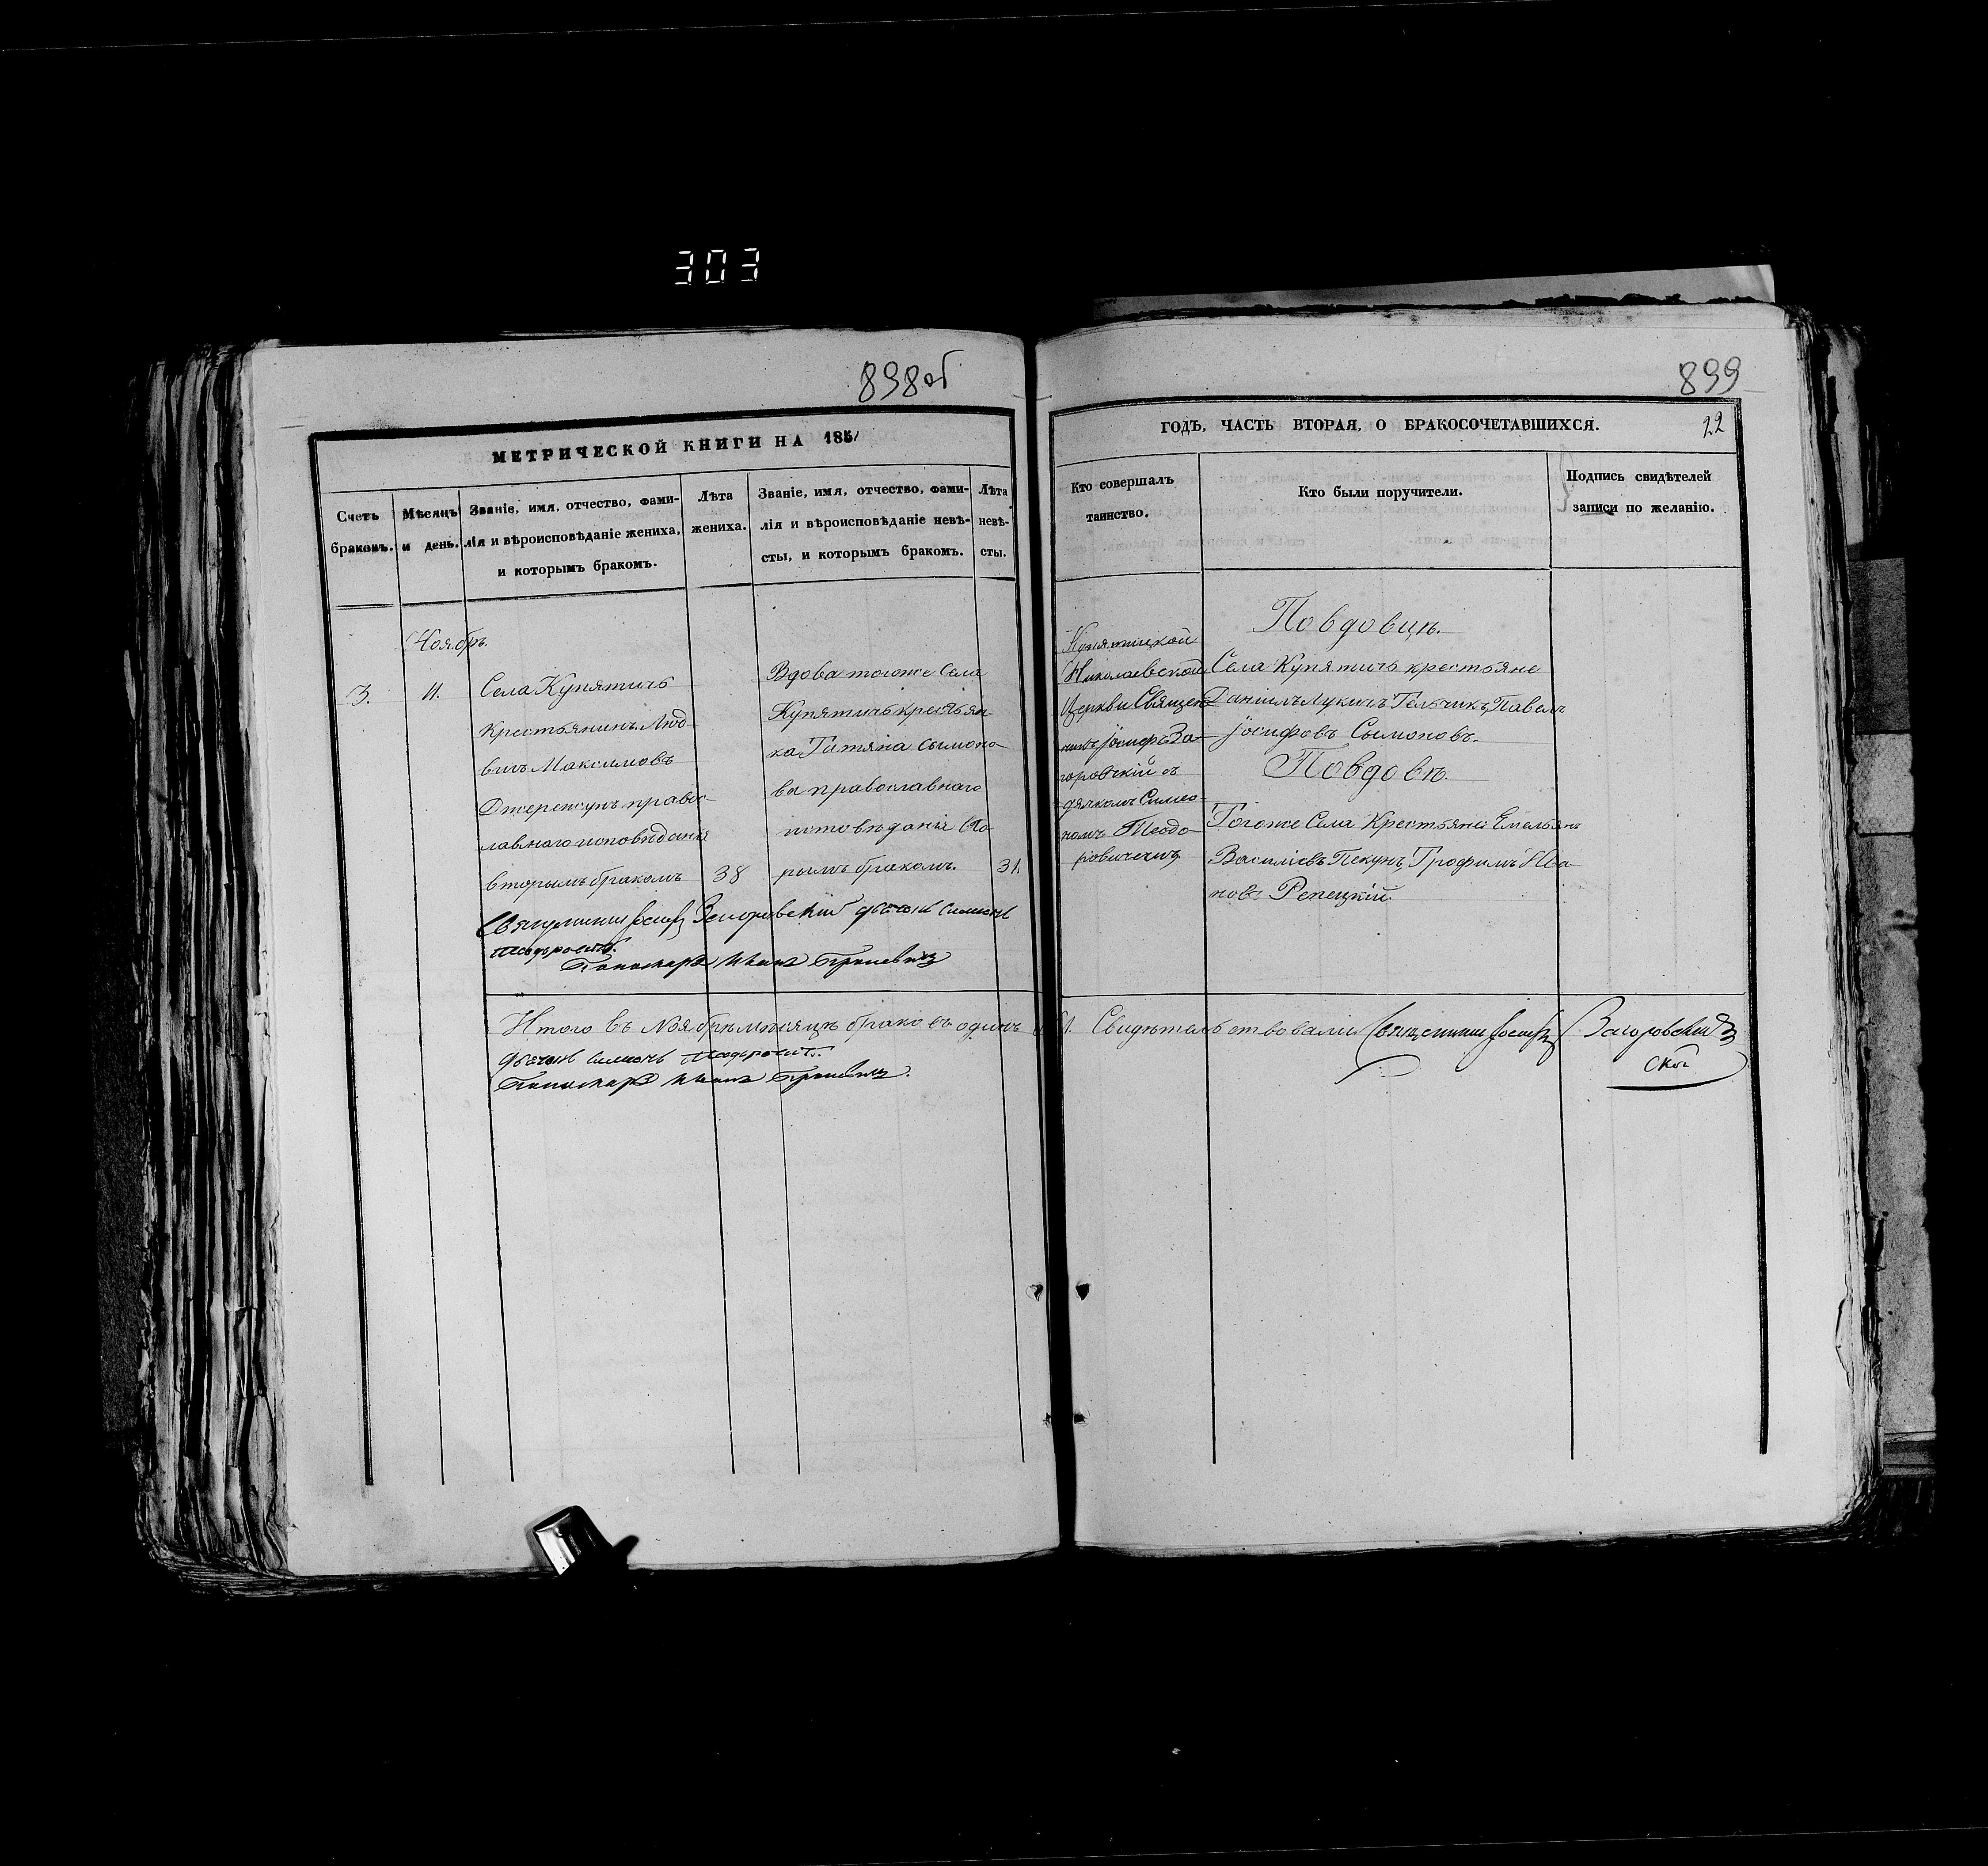 303
898об
МЕТРИЧЕСКОЙ КНИГИ НА 1851
Счетъ
браковъ.
Мѣсяцъ
и день.
Званіе, имя, отчество, фами-
лія и вѣроисповѣданіе жениха,
и которымъ бракомъ.
Лѣта
жениха.
Званіе, имя, отчество, фами-
лія и вѣроисповѣданіе невѣ-
сты, и которымъ бракомъ.
Лѣта
невѣ-
сты.
Ноябрь.
3.
11.
Села Купятичъ
Крестьянинъ Люд-
вигъ Максимовъ
правос-
лавнаго исповѣданія
вторымъ бракомъ
38
Вдова тогоже Села
Купятичъ крестьян-
ка Татяна Сымоно-
ва православнаго
исповѣданія вто-
рымъ бракомъ.
31.
Священникъ Іосифъ Загоровскій дьячокъ Симеонъ
Теодоровичъ.
Пономарь Иванъ
Итого въ Ноябрѣ мѣсяцѣ браковъ одинъ
Дьячокъ Симеонъ Теодоровичъ.
Пономарь Иванъ
899
22
ГОДЪ, ЧАСТЬ ВТОРАЯ, О БРАКОСОЧЕТАВШИХСЯ.
Кто совершалъ
таинство.
Кто были поручители.
Подпись свидѣтелей
записи по желанію.
Купятицкой
Николаевской
Церкви Священ-
никъ Іосифъ За-
горовскій съ
дячкомъ Симео-
номъ Теодо-
ровичемъ
По вдовцѣ.
Села Купятичъ крестьяне
Даніилъ Лукичъ Гельчикъ, Павелъ
Іосифовъ Сымоновъ.
По вдовѣ.
Тогоже Села Крестьяне Емельянъ
Василіевъ Пекунъ, Трофимъ Ива-
новъ Репецкій.
1. Свидѣтельствовали Священникъ Іосифъ Загоровскій